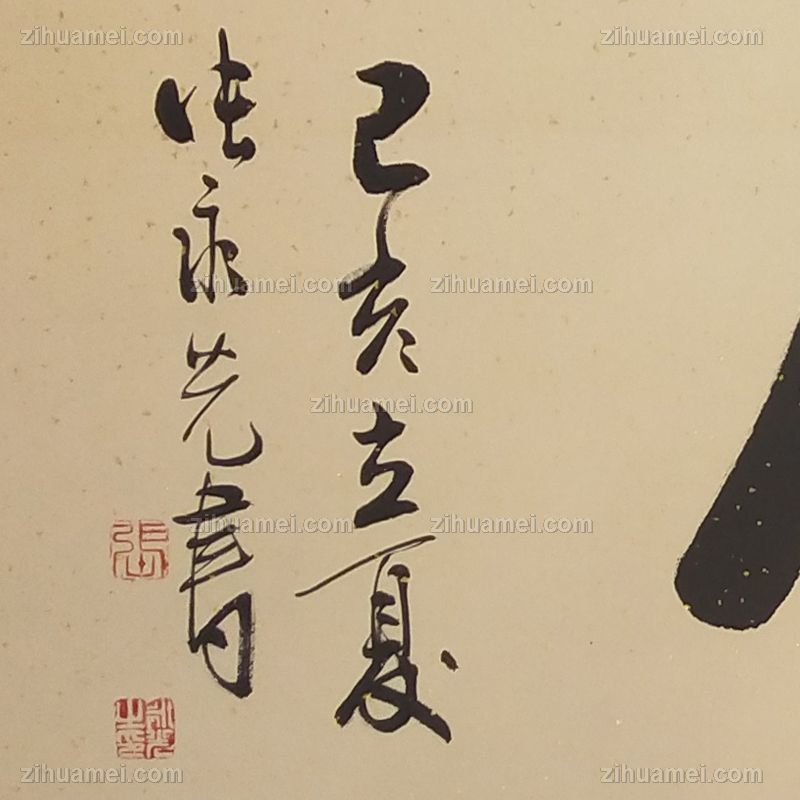 己亥立夏
张永光书
張
永光之印
zihuamei.com
zihuamei.com
zihuamei.com
zihuamei.com
zihuamei.com
zihuamei.com
zihuamei.com
zihuamei.com
zihuamei.com
zihuamei.com